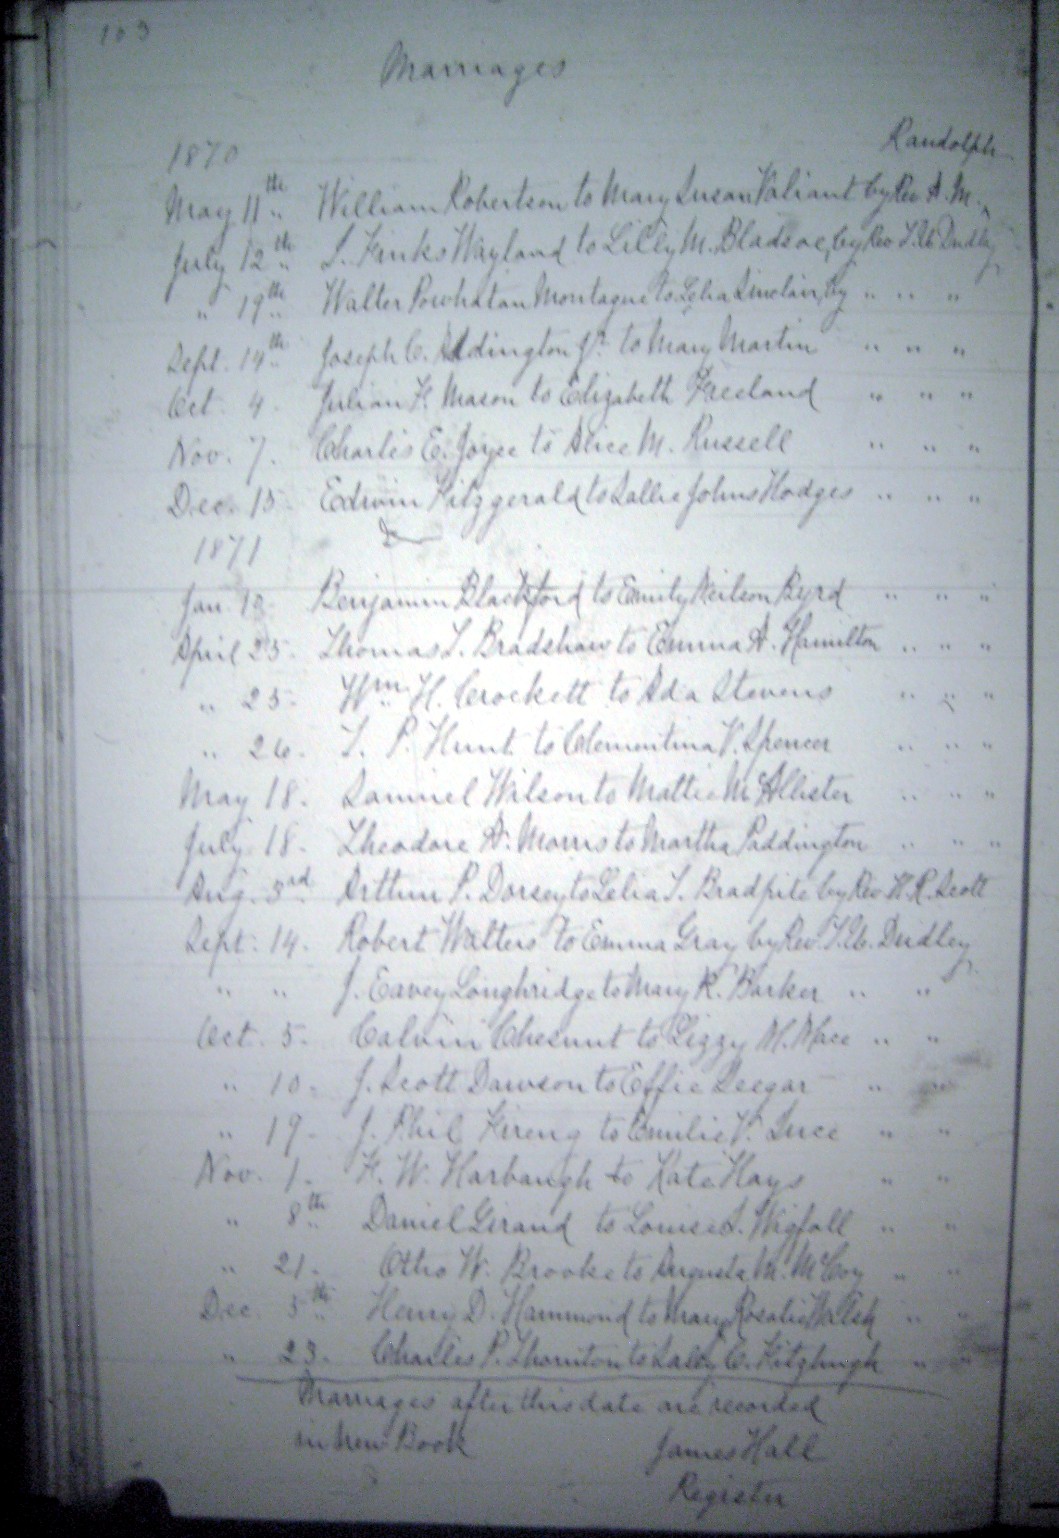 103
Marriages
1870
Randolph
May 11th William Robertson to Mary Susan Valiant by Rev A. M. ^
July 12th S. Finks Wayland to Lilly M. Bladsoe, by Rev T. U. Dudley
" 19th Walter Powhatan Montague to Lelia Sinclair, by " " "
Sept. 14th Joseph C. Addington Jr. to Mary Martin " " "
Oct. 4. Julian F. Mason to Elizabeth Freeland " " "
Nov. 7. Charles E. Joyce to Alice M. Russell " " "
Dec. 15. Edwin Fitzgerald to Sallie Johns Hodges " " "
1871
Jan. 12. Benjamin Blackford to Emily Neilson Byrd " " "
April 25. Thomas S. Bradshaw to Emma A. Hamilton " " "
" 25. Wm. H. Crockett to Ada Stevens " " "
" 26. S. P. Hunt to Clementina V. Spencer " " "
May 18. Samuel Wilson to Mattie McAllister " " "
July 18. Theodore A. Morris to Martha Paddington " " "
Aug. 3rd. Arthur P. Dorsey to Lelia S. by Rev. W. R. Scott
Sept. 14. Robert Walters to Emma Gray by Rev. T. U. Dudley
" " J. Loughridge to Mary R. Barker " "
Oct. 5. Calvin Chesnut to Lizzy M. Mace " "
" 10. J. Scott Dawson to Effie Seegar " "
" 19. J. Phil to Emilie V. Luce " "
Nov. 1. F. W. Harbaugh to Kate Hays " "
" 8th. Daniel Giraud to Louise S. Wigfall " "
" 21. Otho W. Brooke to Augusta M. McCoy " "
Dec. 5th. Henry D. Hammond to Mary Rosalie Walsh " "
" 23. Charles P. Thornton to C. Fitzhugh " "
Marriages after this date are recorded
in new Book James Hall
Register